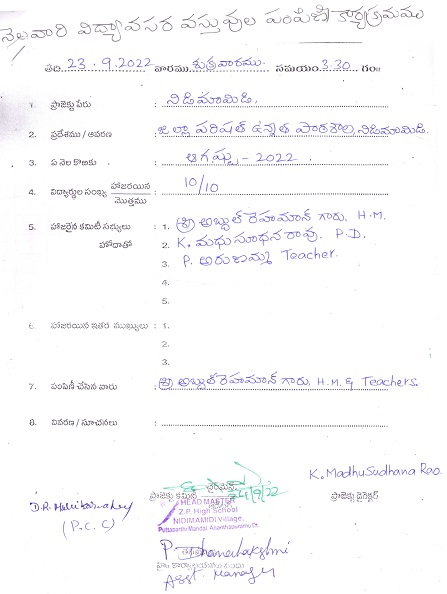 నెలవారి విద్యావసర వస్తువుల పంపిణి కార్యక్రమము
తేది 23.9.2022 వారము శుక్రవారము. సమయం. 3.30 గం॥
1. ప్రాజెక్టు పేరు : నిడిమామిడి.
2. ప్రదేశము / ఆవరణ : జిల్లా పరిషత్ ఉన్నత పాఠశాల, నిడిమామిడి.
3. ఏ నెల కొఱకు : ఆగష్టు - 2022
4. విద్యార్థుల సంఖ్య హాజరయిన / మొత్తము : 10/10
5. హాజరైన కమిటీ సభ్యులు : 1. శ్రీ అబ్దుల్ రెహమాన్ గారు, H.M.
హోదాతో 2. K. మధుసూధన రావు. P.D.
3. P. అరుణమ్మ Teacher.
4.
5.
6. హాజరయిన ఇతర ముఖ్యులు : 1.
2.
3.
7. పంపిణీ చేసిన వారు : శ్రీ అబ్దుల్ రెహమాన్ గారు, H.M. & Teachers.
8. వివరణ / సూచనలు :
K. MadhuSudhana Rao
ప్రాజెక్టు కమిటీ చైర్మెన్ ప్రాజెక్టు డైరెక్టర్
24/9/22
(P.C.C)
HEAD MASTER
Z.P. High School
NIDIMAMIDI Village,
Puttaparthi Mandal
P Dhanalakshmi
Asst. Manager